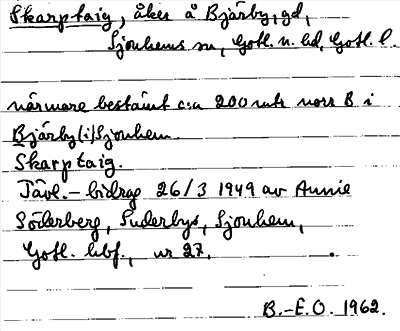 Skarptaig, åker å Bjärby, gd,
Sjonhems sn, Gotl. n. hd, Gotl. l.
närmare bestämt c:a 200 mtr norr B i
Bjärby (i) Sjonhem.
Skarptaig.
Tävl.-bidrag 26/3 1949 av Annie
Söderberg, Suderbys, Sjonhem,
Gotl. hbf., nr 27.
B.-E.O. 1962.